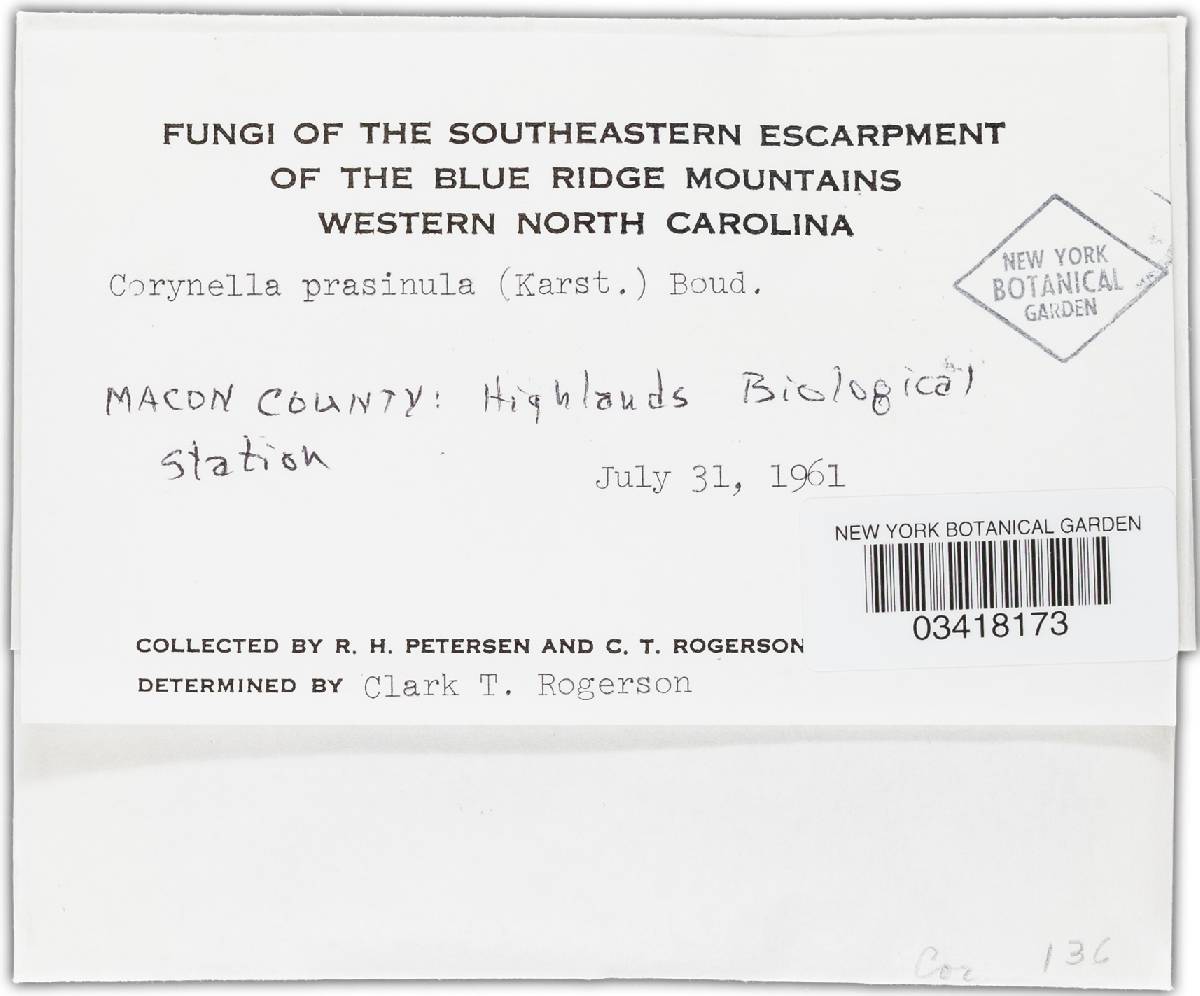 FUNGI OF THE SOUTHEASTERN ESCARPMENT
OF THE BLUE RIDGE MOUNTAINS
WESTERN NORTH CAROLINA
Corynella prasinula (Karst.) Boud.
NEW YORK
BOTANICAL
GARDEN
MACON COUNTY: Highlands Biological
Station
July 31, 1961
NEW YORK BOTANICAL GARDEN
03418173
COLLECTED BY R. H. PETERSEN AND C. T. ROGERSON
DETERMINED BY Clark T. Rogerson
Cor 136